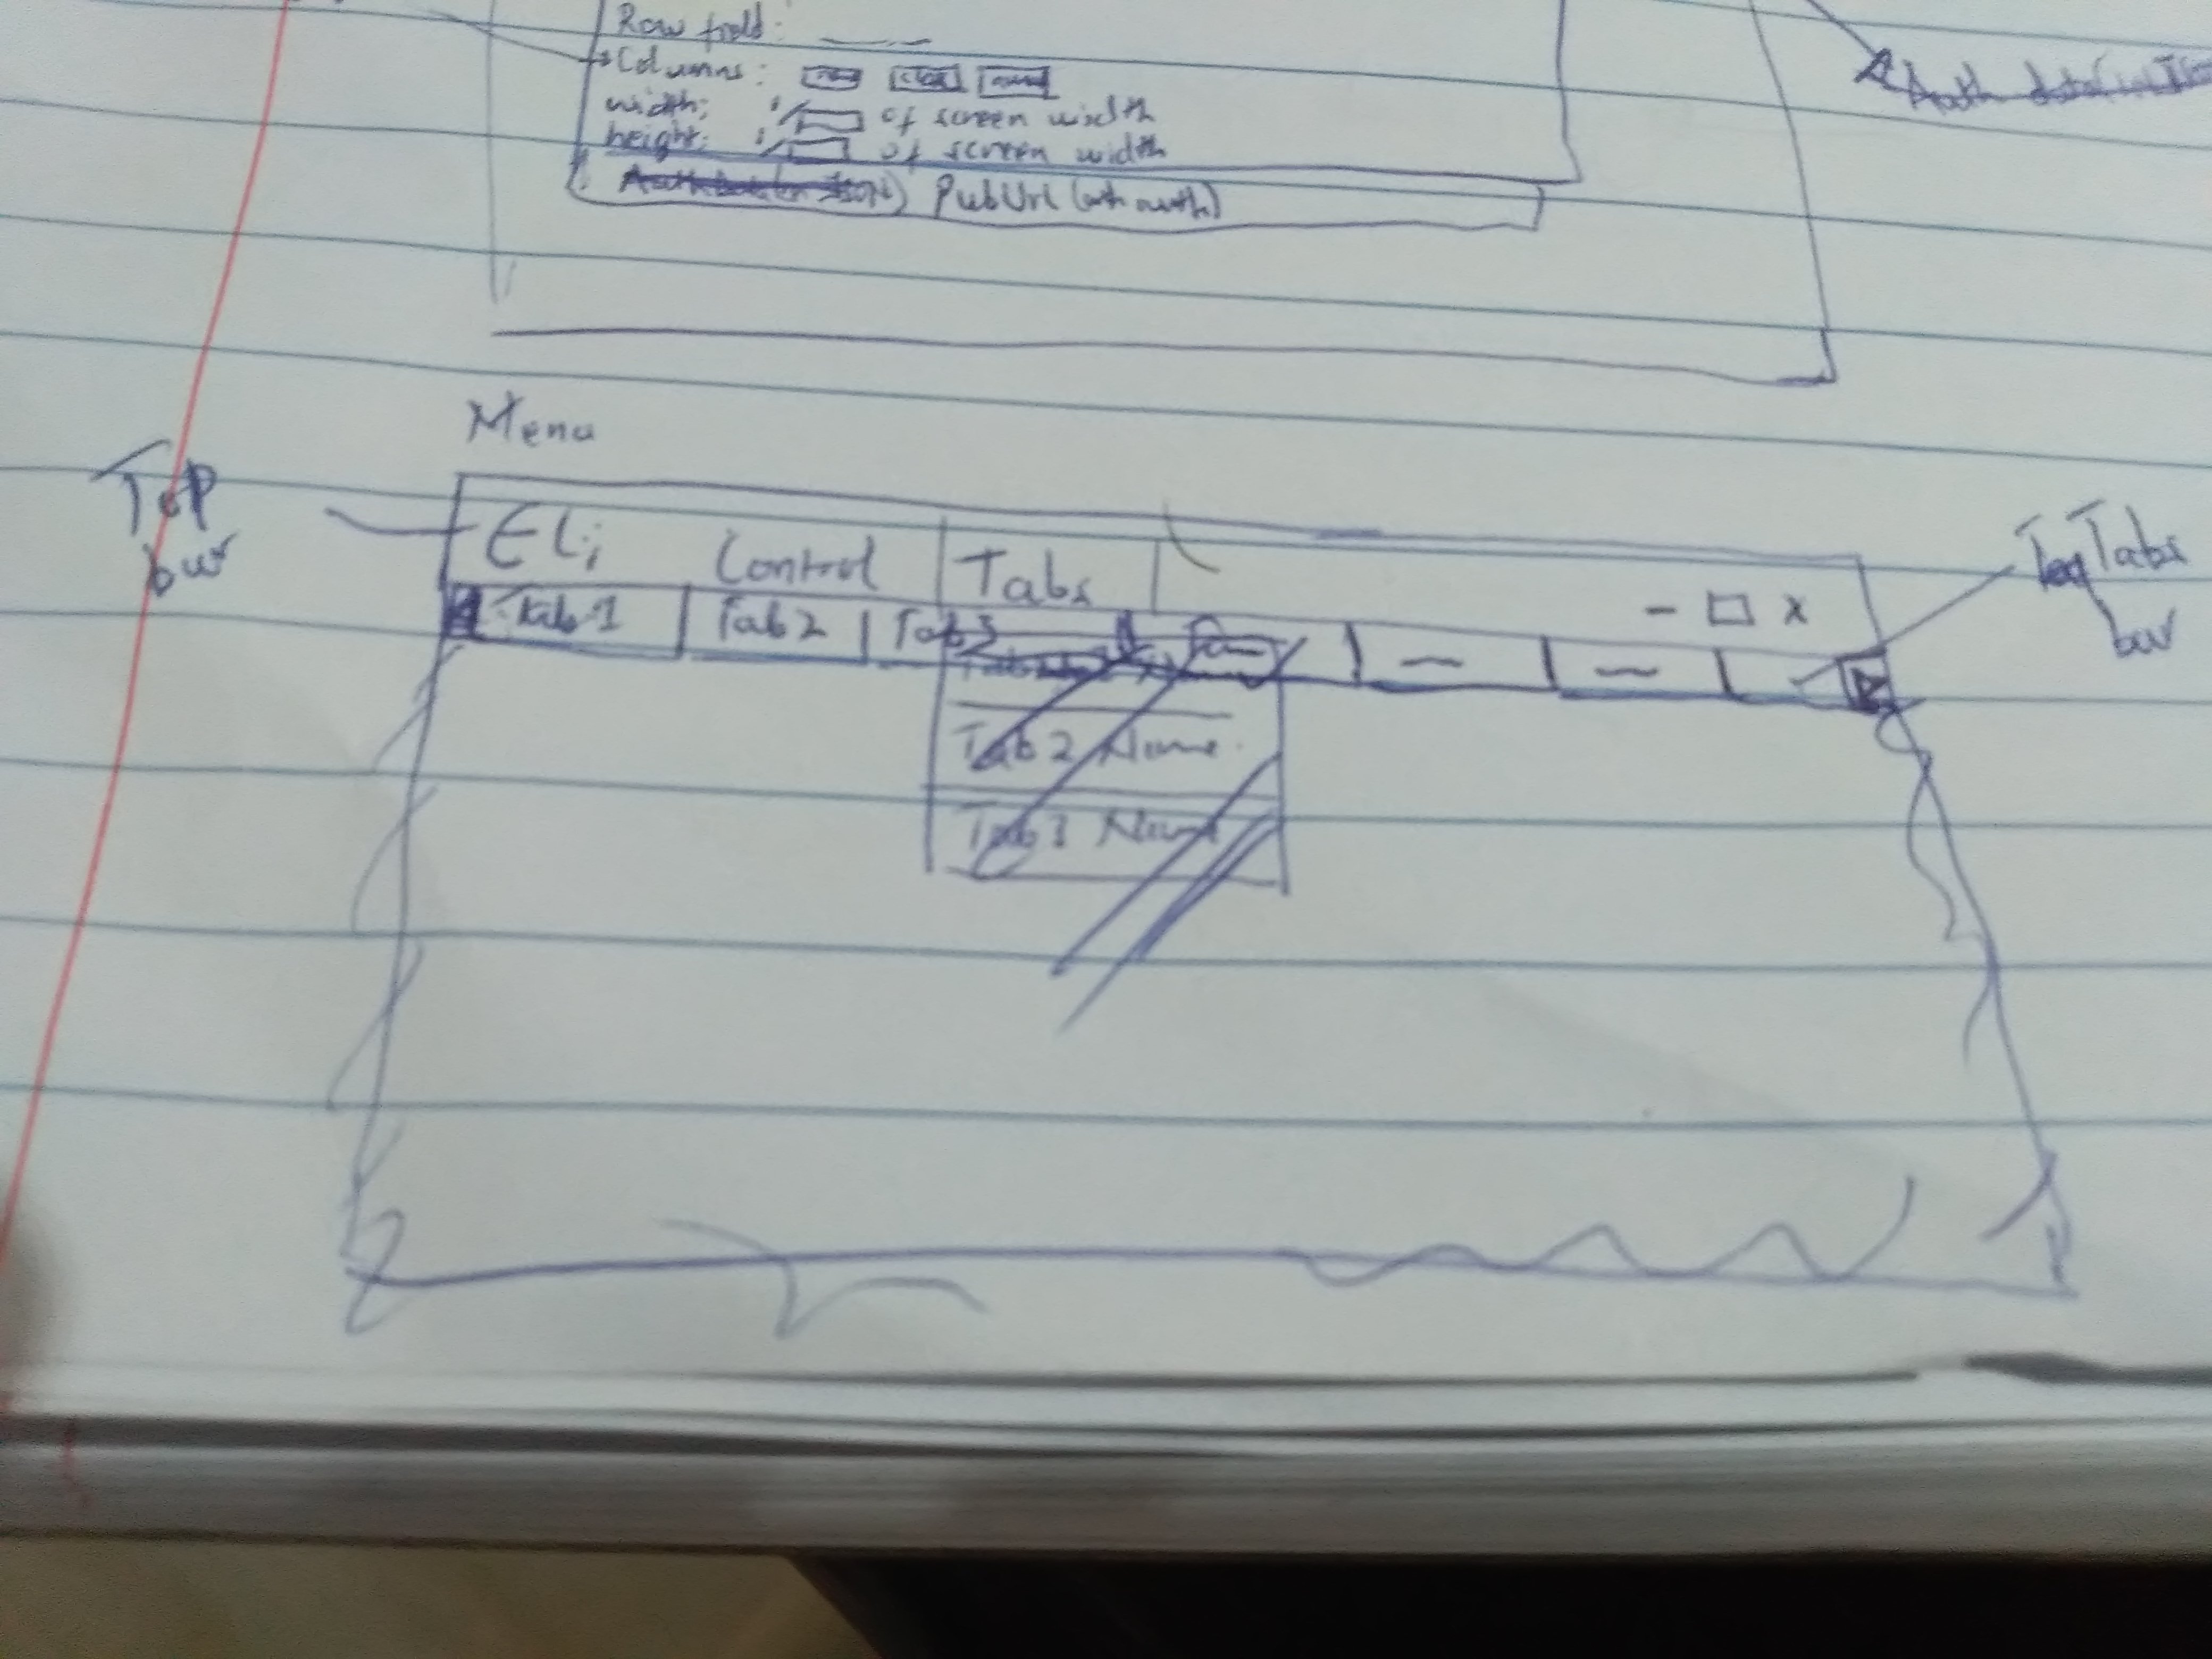 Row field:
Columns:
width: of screen width
height: of screen width
PubUrl (with auth)
Menu
Top bar
Eli Control Tabs
- □ x
Tabs bar
Tab 1 Tab 2 Tab 3
Tab 2 Name
Tab 3 Name